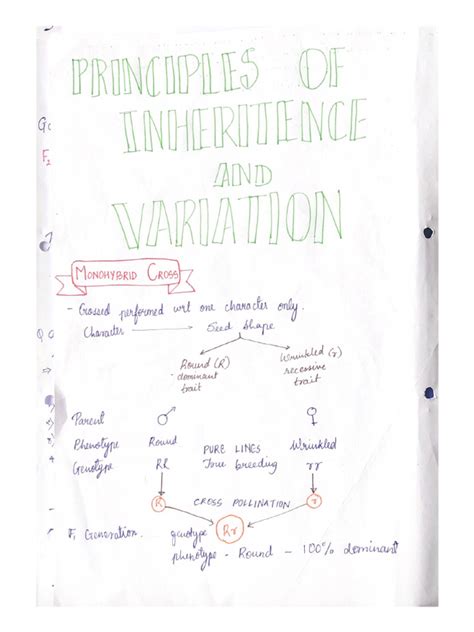 PRINCIPLES OF
INHERITENCE
AND
VARIATION
MONOHYBRID CROSS
- Crossed performed wrt one character only.
Character → Seed Shape
Round (R) Wrinkled (r)
- dominant recessive
trait trait
Parent ♂ ♀
Phenotype Round PURE LINES Wrinkled
Genotype RR True breeding rr
R CROSS POLLINATION r
F1 Generation. genotype Rr
phenotype - Round - 100% dominant